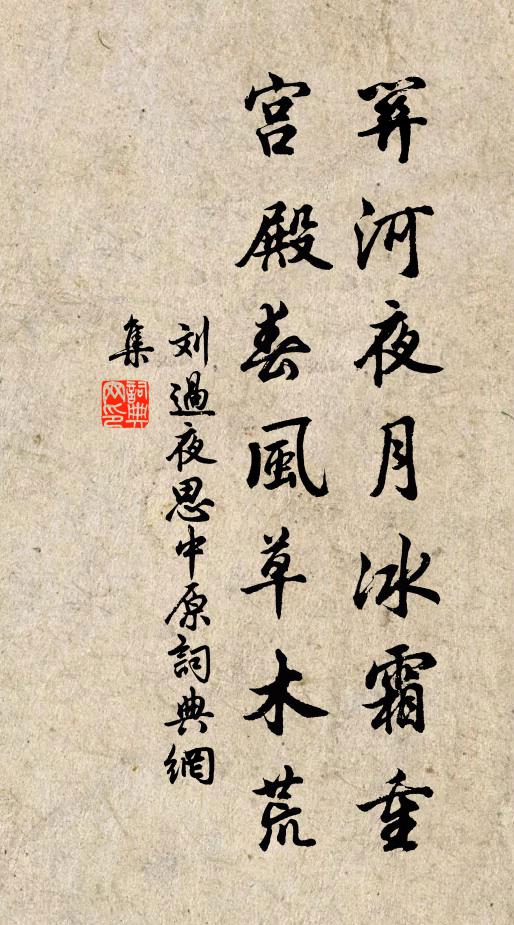 关河夜月冰霜重
宫殿春風草木荒
刘過夜思中原詞典網
集
詞典网印